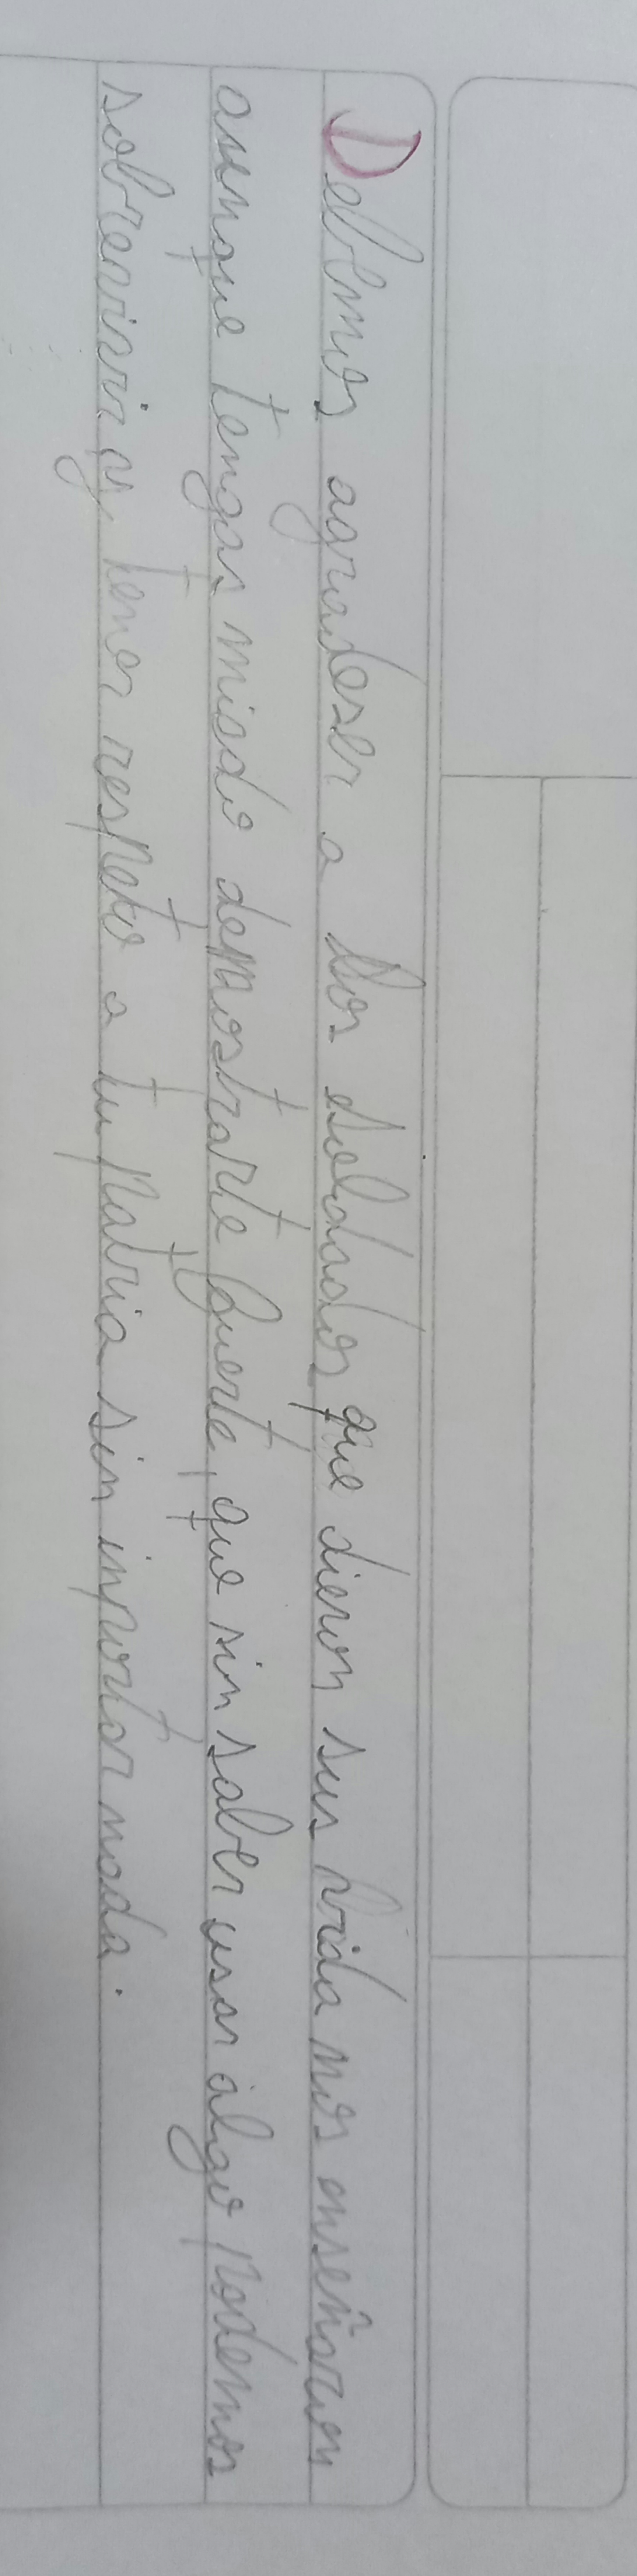 Debemos agradeser a los soldados que dieron sus vida nos enseñaron
aunque tengas miedo demostrarte fuerte, que sin saber usar algo podemos
sobrevivir y tener respeto a tu patria sin inportar nada.